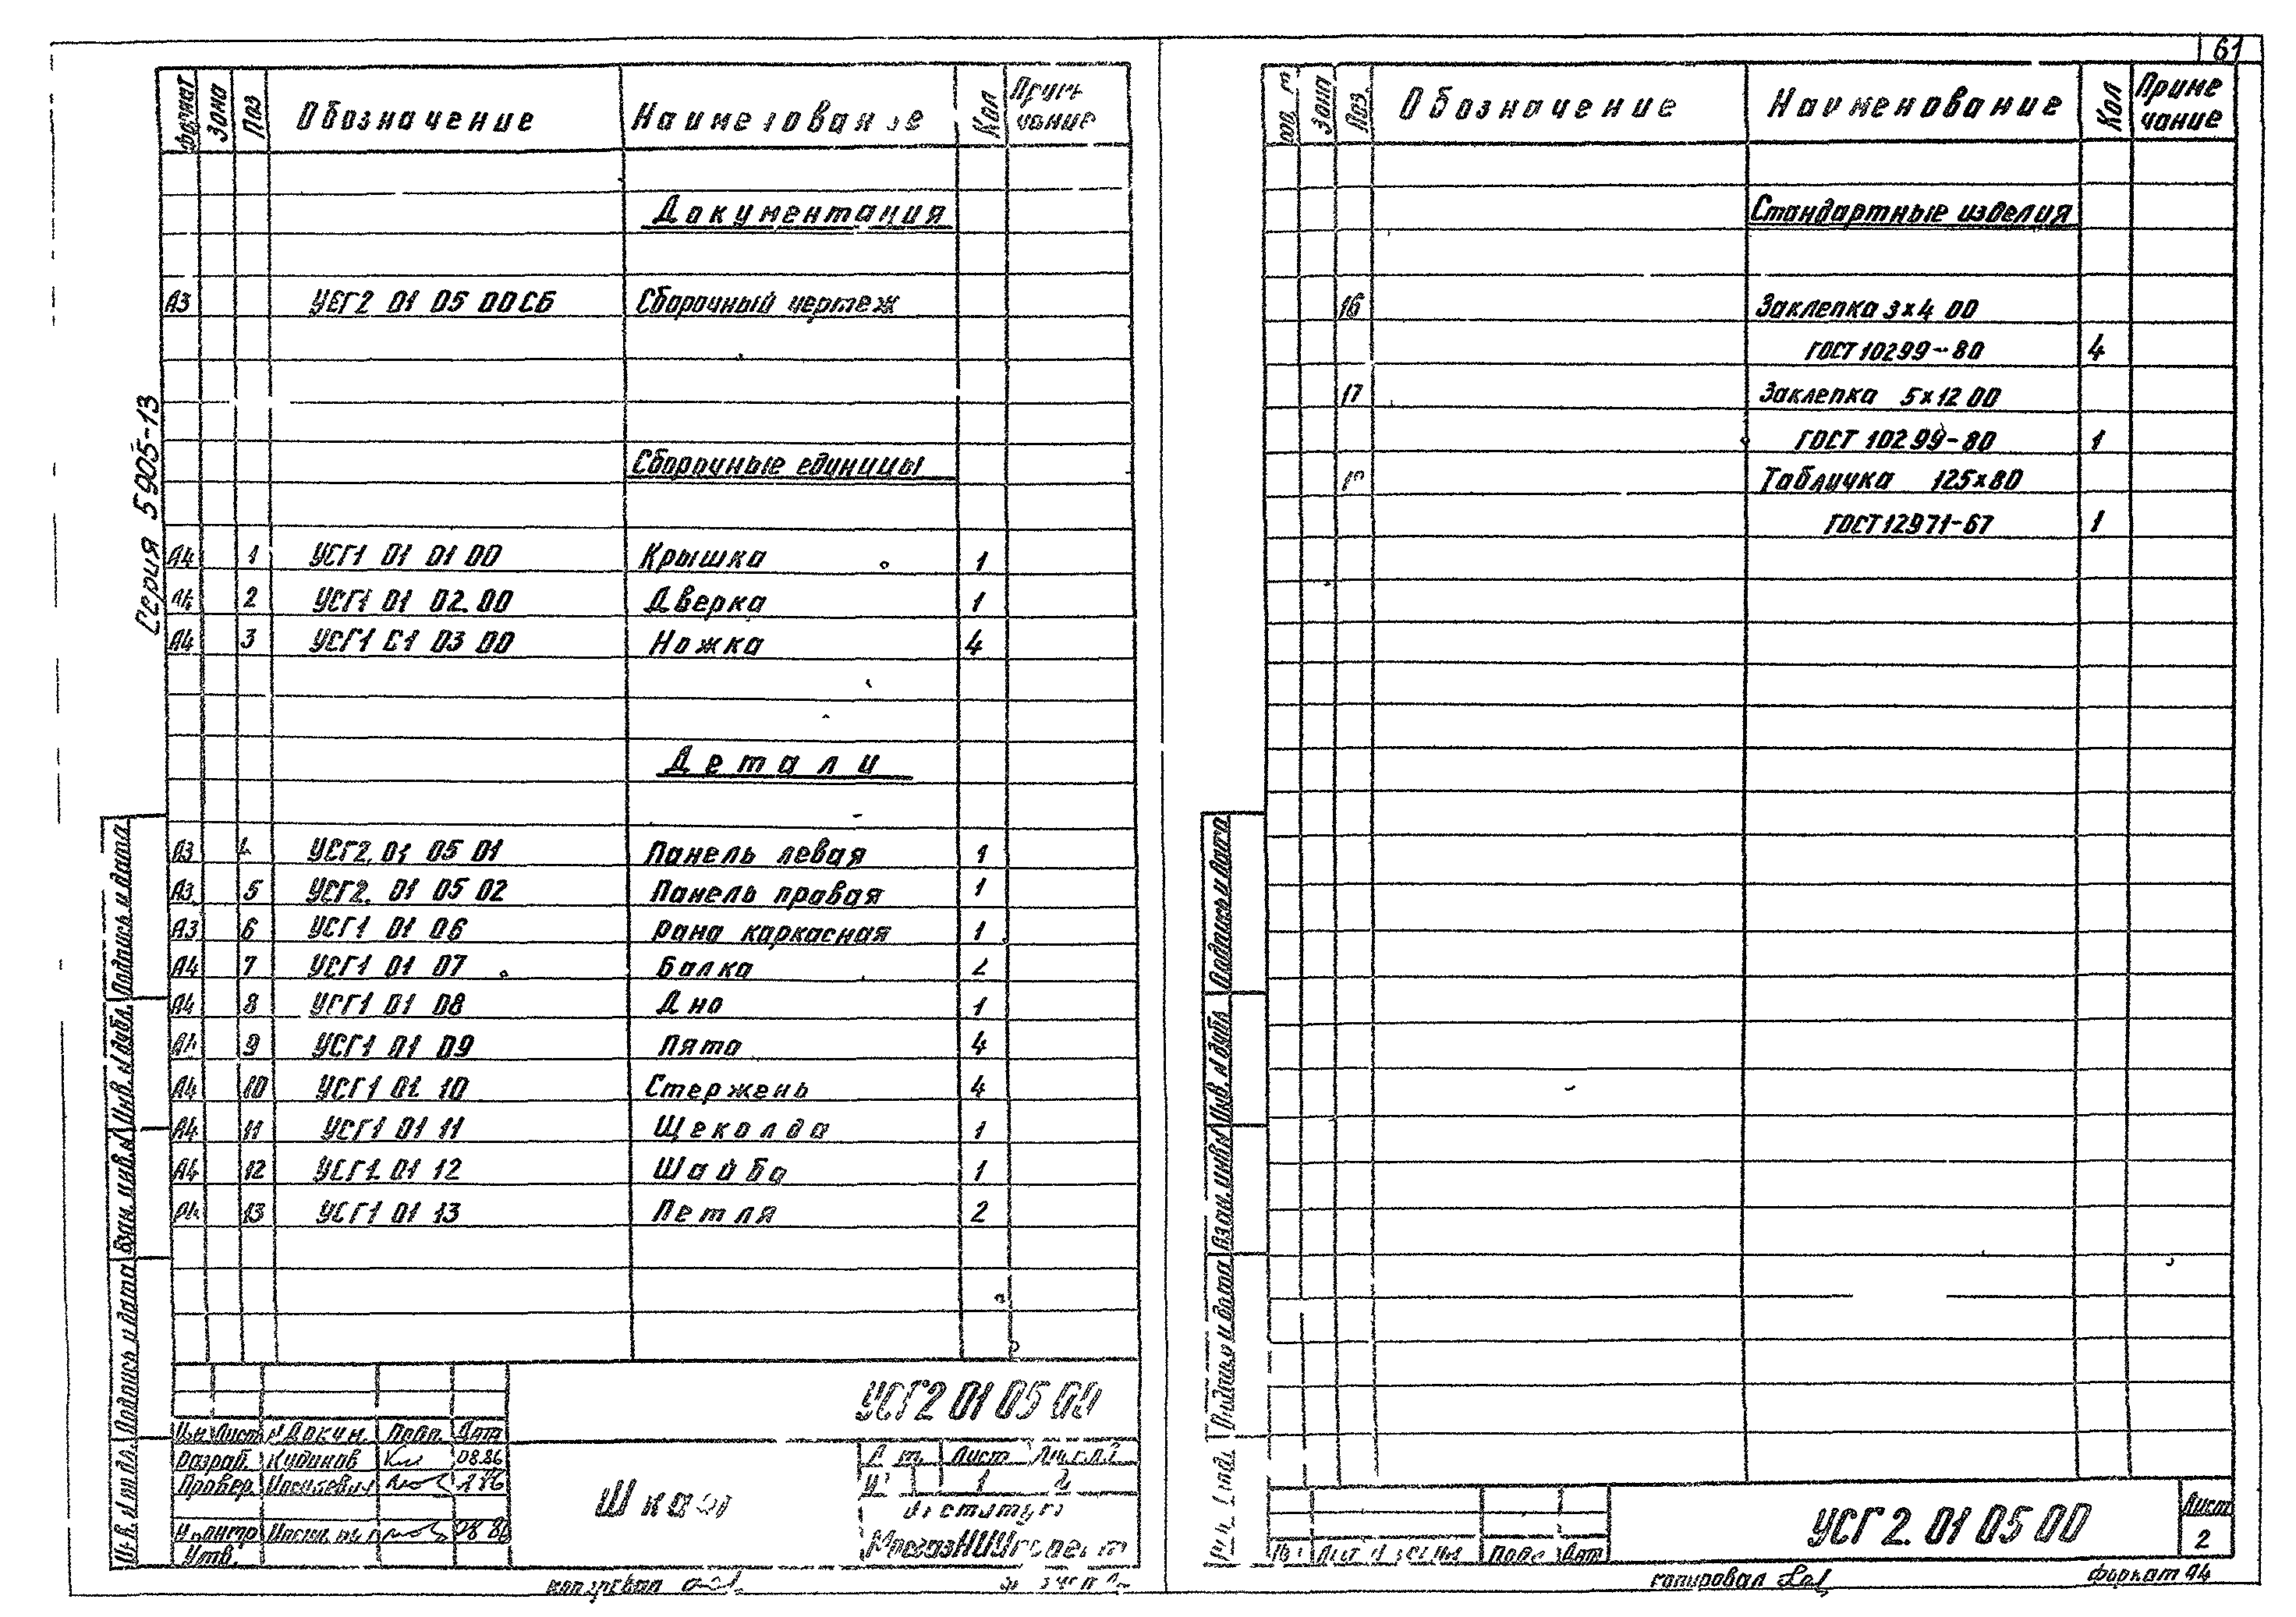 61
Серия 5905-13
Формат Зона Поз Обозначение Наименование Кол Приме чание
Документация
А3 УСГ2 01 05 00СБ Сборочный чертеж
Сборочные единицы
А4 1 УСГ1 01 01 00 Крышка 1
А4 2 УСГ1 01 02.00 Дверка 1
А4 3 УСГ1 01 03 00 Ножка 4
Детали
А3 4 УСГ2.01 05 01 Панель левая 1
А3 5 УСГ2. 01 05 02 Панель правая 1
А3 6 УСГ1 01 06 Рама каркасная 1
А4 7 УСГ1 01 07 Балка 2
А4 8 УСГ1 01 08 Дно 1
А4 9 УСГ1 01 09 Пята 4
А4 10 УСГ1 01 10 Стержень 4
А4 11 УСГ1 01 11 Щеколда 1
А4 12 УСГ1.01 12 Шайба 1
А4 13 УСГ1 01 13 Петля 2
Подпись и дата
Инв. N дубл.
Взам. инв. N
Подпись и дата
УСГ2 01 05 00
Изм Лист N Докум. Подп. Дата
Разраб. Кудинов 08.86
Провер.
Н контр 08 86
Утв.
Шкаф
Лист Листов
1 2
Институт
МосгазНИИпроект
копировал
Зона Поз. Обозначение Наименование Кол Приме чание
Стандартные изделия
16 Заклепка 3х4 00
ГОСТ 10299-80 4
17 Заклепка 5х12 00
ГОСТ 10299-80 1
Табличка 125х80
ГОСТ 12971-67 1
Подпись и дата
Инв. N дубл
Взам. инв N
Подпись и дата
УСГ 2. 01 05 00
Лист
2
копировал
формат А4